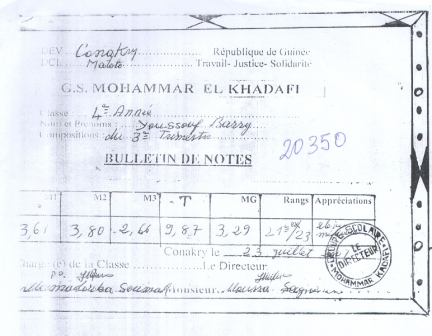 DEV Conakry République de Guinée
DCL Matoto Travail- Justice- Solidarité
G.S. MOHAMMAR EL KHADAFI
Classe : 4e Année
Nom et Prénoms : Youssouf Barry
Compositions : du 3e trimestre
20350
BULLETIN DE NOTES
M1 M2 M3 T MG Rangs Appréciations
3,61 3,80 2,66 9,87 3,29 21e ex/23
Conakry le 23 juillet
Chargé(e) de la Classe Le Directeur
Monsieur
LE DIRECTEUR